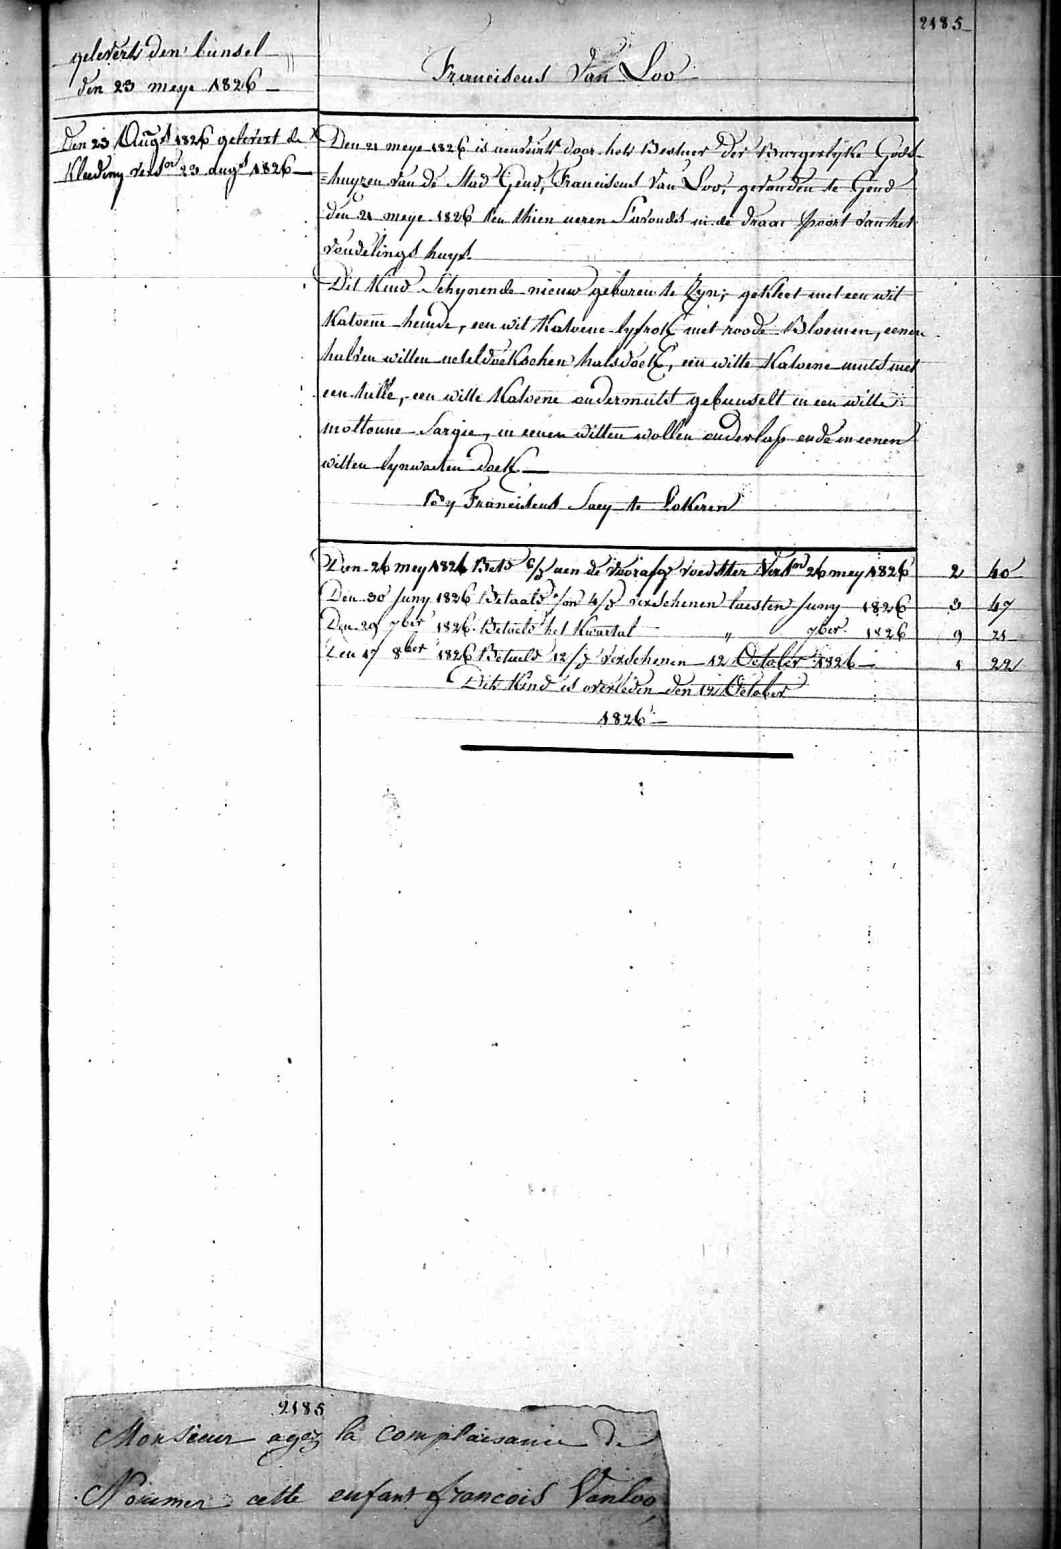 2185
gelevert den bunsel
den 23 meye 1826
Franciscus Van Loo
Den 23 Augt 1826 gelevert de
kleeding versn 23 augt 1826
Den 21 meye 1826 is aenveirt door het Bestuer der Burgerlyke Gods
=huyzen van de Stad Gend, Franciscus Van Loo, gevonden te Gend
den 21 meye 1826 ten thien ueren S'avonds in de draai poort van het
vondelings huys.
Dit Kind Schynende nieuw geboren te Zyn, gekleet met een wit
Katoene hemde, een wit Katoene lyfrok met roode Bloemen, eenen
halven witten neteldoekschen halsdoek, een witte Katoene muts met
een tulle, een witte Katoene ondermuts gebunselt in een witte
mottoune Sargie, in eenen witten wollen onderlap ende in eenen
witten lynwaeten doek
by Franciscus Saey te Lokeren
Den 26 mey 1826 Bet5 aen de voorafg voedster Versn 26 mey 1826 2 40
Den 30 Juny 1826 Betaald verschenen laesten Juny 1826 3 47
Den 29 7ber 1826 Betaeld het Kwartal " 7ber 1826 9 21
Den 17 8ber 1826 Betaeld 12/ verschenen 12 October 1826 1 22
Dit Kind is overleden den 12 October
1826
2185
Monsieur ayez la complaisance de
Nommer cette enfant francois Vanloo